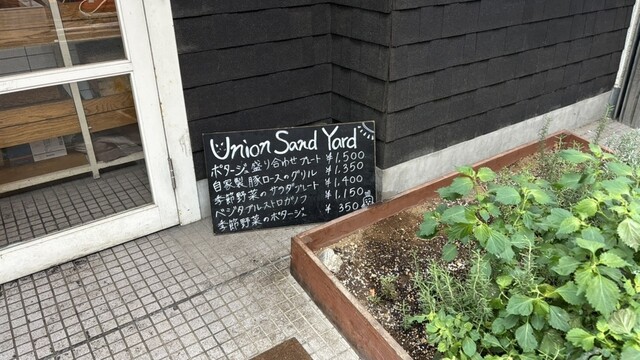 Union Sand Yard
ポタージュ盛り合わせプレート ¥1,500
自家製豚ロースのグリル ¥1,350
季節野菜のサラダプレート ¥1,400
ベジタブルストロガノフ ¥1,150
季節野菜のポタージュ ¥350